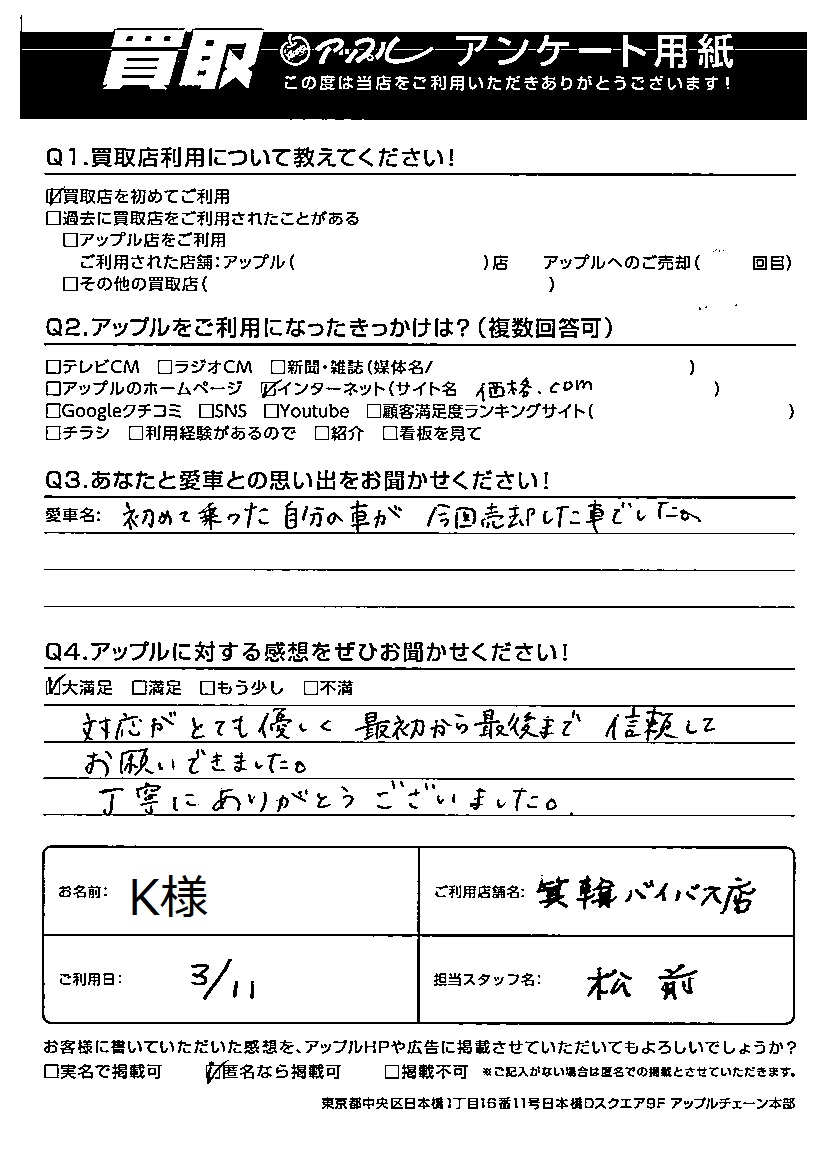 買取 アップル アンケート用紙
この度は当店をご利用いただきありがとうございます!
Q1.買取店利用について教えてください!
☑買取店を初めてご利用
□過去に買取店をご利用されたことがある
□アップル店をご利用
ご利用された店舗:アップル( )店 アップルへのご売却( 回目)
□その他の買取店( )
Q2.アップルをご利用になったきっかけは?(複数回答可)
□テレビCM □ラジオCM □新聞・雑誌(媒体名/ )
□アップルのホームページ ☑インターネット(サイト名 価格.com )
□Googleクチコミ □SNS □Youtube □顧客満足度ランキングサイト( )
□チラシ □利用経験があるので □紹介 □看板を見て
Q3.あなたと愛車との思い出をお聞かせください!
愛車名: 初めて乗った自分の車が 今回売却した車でした。
Q4.アップルに対する感想をぜひお聞かせください!
☑大満足 □満足 □もう少し □不満
対応がとても優しく 最初から最後まで 信頼して
お願いできました。
丁寧にありがとうございました。
お名前: K様 ご利用店舗名: 箕輪バイパス店
ご利用日: 3/11 担当スタッフ名: 松前
お客様に書いていただいた感想を、アップルHPや広告に掲載させていただいてもよろしいでしょうか?
□実名で掲載可 ☑匿名なら掲載可 □掲載不可 ※ご記入がない場合は匿名での掲載とさせていただきます。
東京都中央区日本橋1丁目16番11号日本橋Dスクエア9F アップルチェーン本部